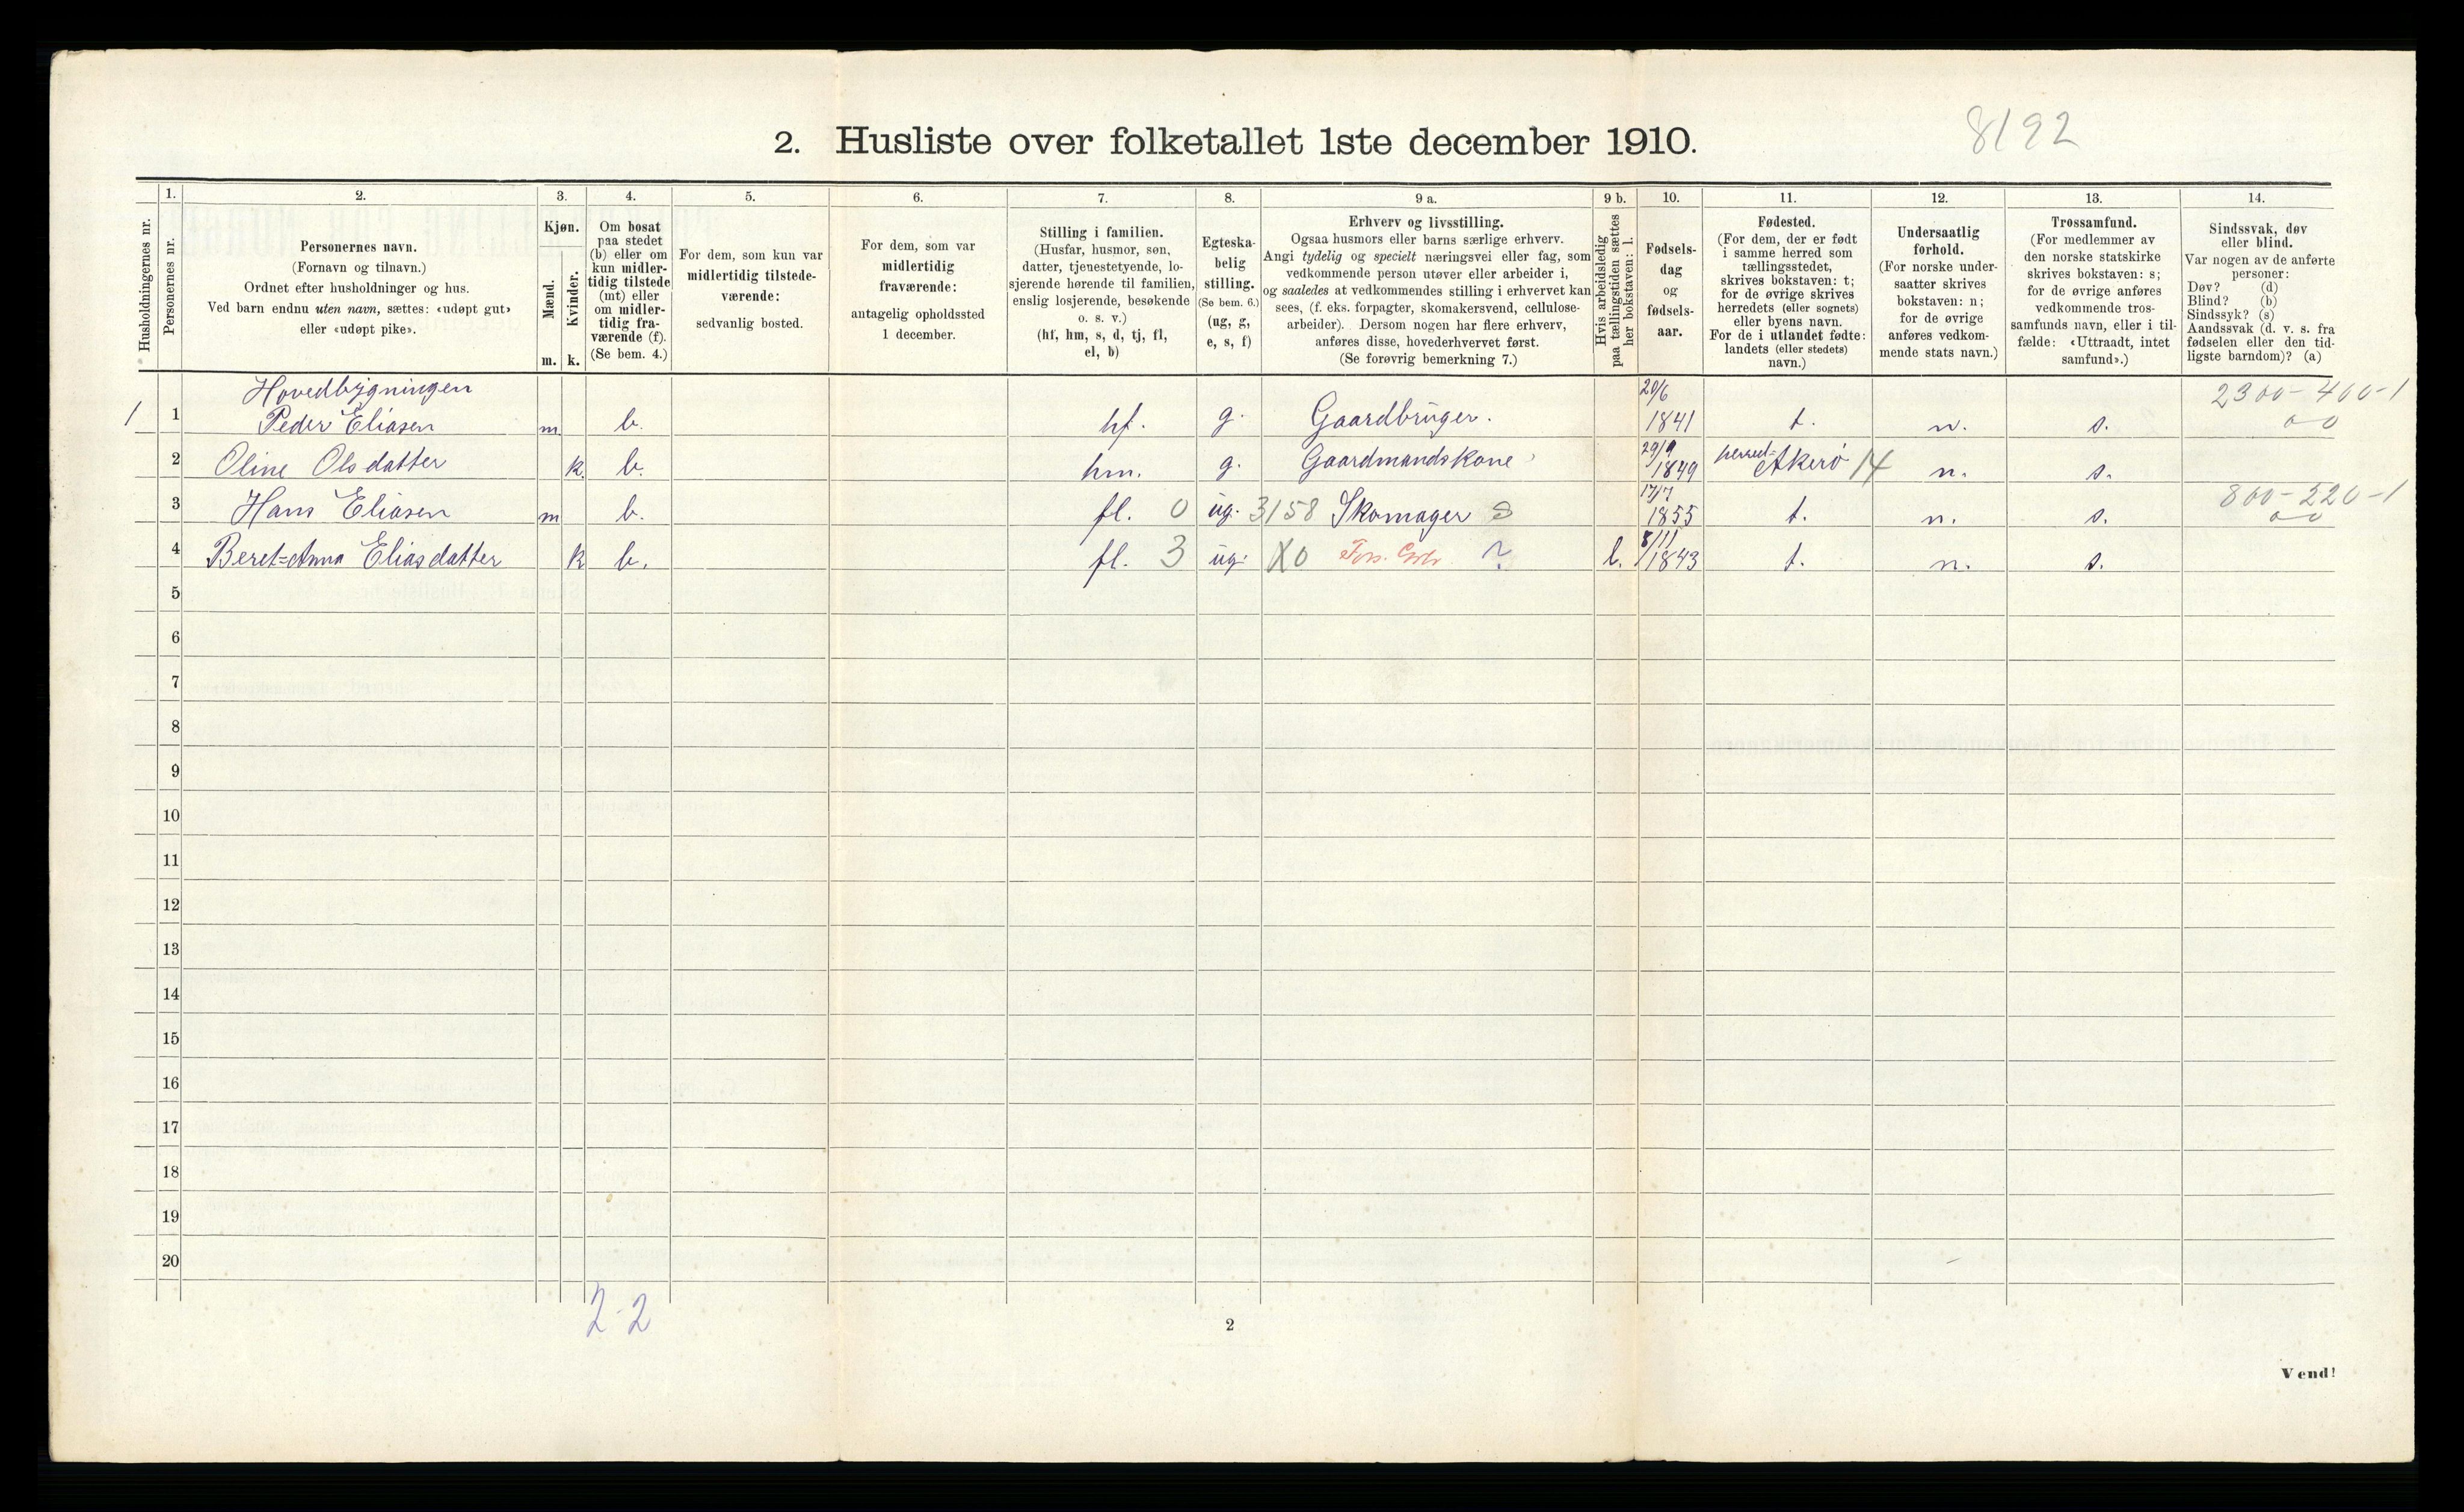 8192
2. Husliste over folketallet 1ste december 1910.
Husholdningernes nr.
1.
Personernes nr.
2.
Personernes navn.
(Fornavn og tilnavn.)
Ordnet efter husholdninger og hus.
Ved barn endnu uten navn, sættes: «udøpt gut»
eller «udøpt pike».
3.
Kjøn.
Mænd.
Kvinder.
m. k.
4.
Om bosat
paa stedet
(b) eller om
kun midler-
tidig tilstede
(mt) eller
om midler-
tidig fra-
værende (f).
(Se bem. 4.)
5.
For dem, som kun var
midlertidig tilstede-
værende:
sedvanlig bosted.
6.
For dem, som var
midlertidig
fraværende:
antagelig opholdssted
1 december.
7.
Stilling i familien.
(Husfar, husmor, søn,
datter, tjenestetyende, lo-
sjerende hørende til familien,
enslig losjerende, besøkende
o. s. v.)
(hf, hm, s, d, tj, fl,
el, b)
8.
Egteska-
belig
stilling.
(Se bem. 6.)
(ug, g,
e, s, f)
9 a.
Erhverv og livsstilling.
Ogsaa husmors eller barns særlige erhverv.
Angi tydelig og specielt næringsvei eller fag, som
vedkommende person utøver eller arbeider i,
og saaledes at vedkommendes stilling i erhvervet kan
sees, (f. eks. forpagter, skomakersvend, cellulose-
arbeider). Dersom nogen har flere erhverv,
anføres disse, hovederhvervet først.
(Se forøvrig bemerkning 7.)
9 b.
Hvis arbeidsledig
paa tællingstiden sættes
her bokstaven: l.
10.
Fødsels-
dag
og
fødsels-
aar.
11.
Fødested.
(For dem, der er født
i samme herred som
tællingsstedet,
skrives bokstaven: t;
for de øvrige skrives
herredets (eller sognets)
eller byens navn.
For de i utlandet fødte:
landets (eller stedets)
navn.)
12.
Undersaatlig
forhold.
(For norske under-
saatter skrives
bokstaven: n;
for de øvrige
anføres vedkom-
mende stats navn.)
13.
Trossamfund.
(For medlemmer av
den norske statskirke
skrives bokstaven: s;
for de øvrige anføres
vedkommende tros-
samfunds navn, eller i til-
fælde: «Uttraadt, intet
samfund».)
14.
Sindssvak, døv
eller blind.
Var nogen av de anførte
personer:
Døv? (d)
Blind? (b)
Sindssyk? (s)
Aandssvak (d. v. s. fra
fødselen eller den tid-
ligste barndom)? (a)
Hovedbygningen 20/6 2300-400-1
1 1 Peder Eliasen m. b. hf. g. Gaardbruger. 1841 t. n. s. 00
2 Oline Olsdatter k. b. hm. g. Gaardmandskone 29/9 1849 herred= Akerö 14 n. s.
3 Hans Eliasen m b. fl. 0 ug. 3158 Skomager S 17/7 1855 t. n. s. 800-220-1 00
4 Beret=Anna Eliasdatter k b. fl. 3 ug. X0 ? l. 8/11 1843 t. n. s.
5
6
7
8
9
10
11
12
13
14
15
16
17
18
19
20
2-2
2
Vend!